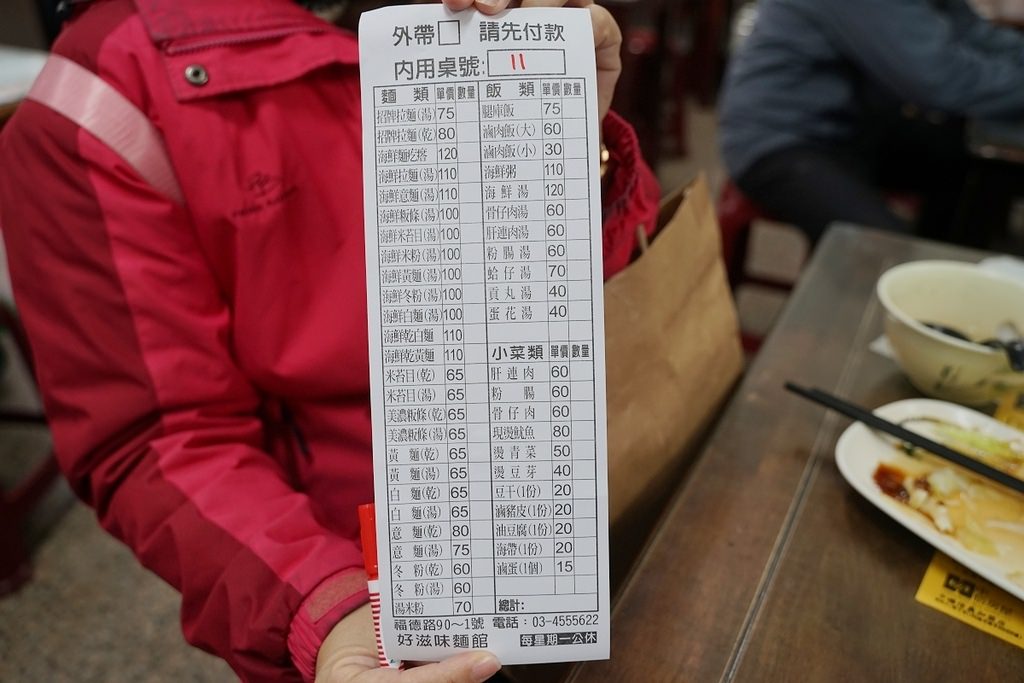 外帶□ 請先付款
內用桌號: 11
麵類 單價 數量 飯類 單價 數量
招牌拉麵(湯) 75 腿庫飯 75
招牌拉麵(乾) 80 滷肉飯(大) 60
海鮮麵疙瘩 120 滷肉飯(小) 30
海鮮拉麵(湯) 110 海鮮粥 110
海鮮意麵(湯) 110 海鮮湯 120
海鮮粄條(湯) 100 骨仔肉湯 60
海鮮米苔目(湯) 100 肝連肉湯 60
海鮮米粉(湯) 100 粉腸湯 60
海鮮黃麵(湯) 100 蛤仔湯 70
海鮮冬粉(湯) 100 貢丸湯 40
海鮮白麵(湯) 100 蛋花湯 40
海鮮乾白麵 110
海鮮乾黃麵 110 小菜類 單價 數量
米苔目(乾) 65 肝連肉 60
米苔目(湯) 65 粉腸 60
美濃粄條(乾) 65 骨仔肉 60
美濃粄條(湯) 65 現燙魷魚 80
黃麵(乾) 65 燙青菜 50
黃麵(湯) 65 燙豆芽 40
白麵(乾) 65 豆干(1份) 20
白麵(湯) 65 滷豬皮(1份) 20
意麵(乾) 80 油豆腐(1份) 20
意麵(湯) 75 海帶(1份) 20
冬粉(乾) 60 滷蛋(1個) 15
冬粉(湯) 60
湯米粉 70 總計:
福德路90～1號 電話：03-4555622
好滋味麵館 每星期一公休